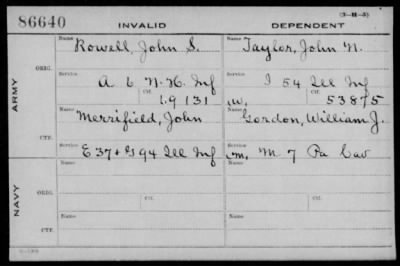 (3-H-5)
86640 INVALID DEPENDENT
Name Rowell, John S. Name Taylor, John N.
Service Service
ORIG. A 6 N.H. Inf I 54 Ill Inf
Ctf. 69131 W. Ctf. 53875
ARMY
Name Merrifield, John Name Gordon, William J.
Service Service
CTF. E 37 + G 94 Ill Inf m. M 7 Pa Cav
Name Name
NAVY
Service Service
ORIG.
Ctf. Ctf.
Name Name
CTF.